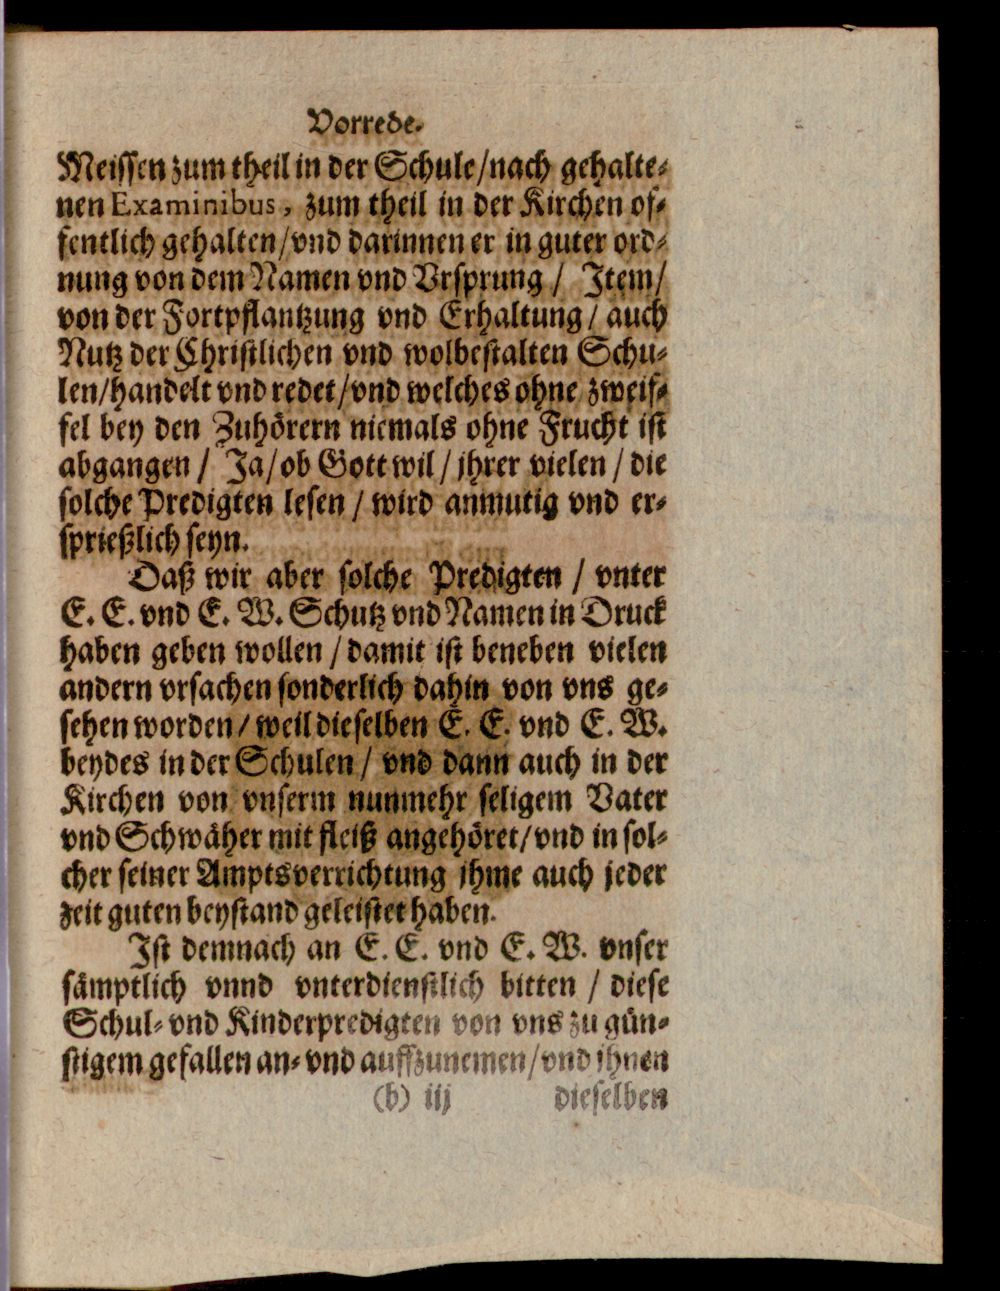 Vorrede.
Meissen zum theil in der Schule/nach gehalte-
nen Examinibus, zum theil in der Kirchen of-
fentlich gehalten/vnd darinnen er in guter ord-
nung von dem Namen vnd Vrsprung / Item/
von der Fortpflantzung vnd Erhaltung/ auch
Nutz der Christlichen vnd wolbestalten Schu-
len/handelt vnd redet/vnd welches ohne zweif-
fel bey den Zuhörern niemals ohne Frucht ist
abgangen / Ja/ob Gott wil / jhrer vielen / die
solche Predigten lesen / wird anmutig vnd er-
sprießlich seyn.
Daß wir aber solche Predigten / vnter
E. E. vnd E. W. Schutz vnd Namen in Druck
haben geben wollen / damit ist beneben vielen
andern vrsachen sonderlich dahin von vns ge-
sehen worden/ weil dieselben E. E. vnd E. W.
beydes in der Schulen / vnd dann auch in der
Kirchen von vnserm nunmehr seligem Vater
vnd Schwäher mit fleiß angehöret/vnd in sol-
cher seiner Amptsverrichtung jhme auch jeder
zeit guten beystand geleistet haben.
Ist demnach an E. E. vnd E. W. vnser
sämptlich vnnd vnterdienstlich bitten / diese
Schul- vnd Kinderpredigten von vns zu gün-
stigem gefallen an- vnd auffzunemen/vnd jhnen
(b) iij dieselben